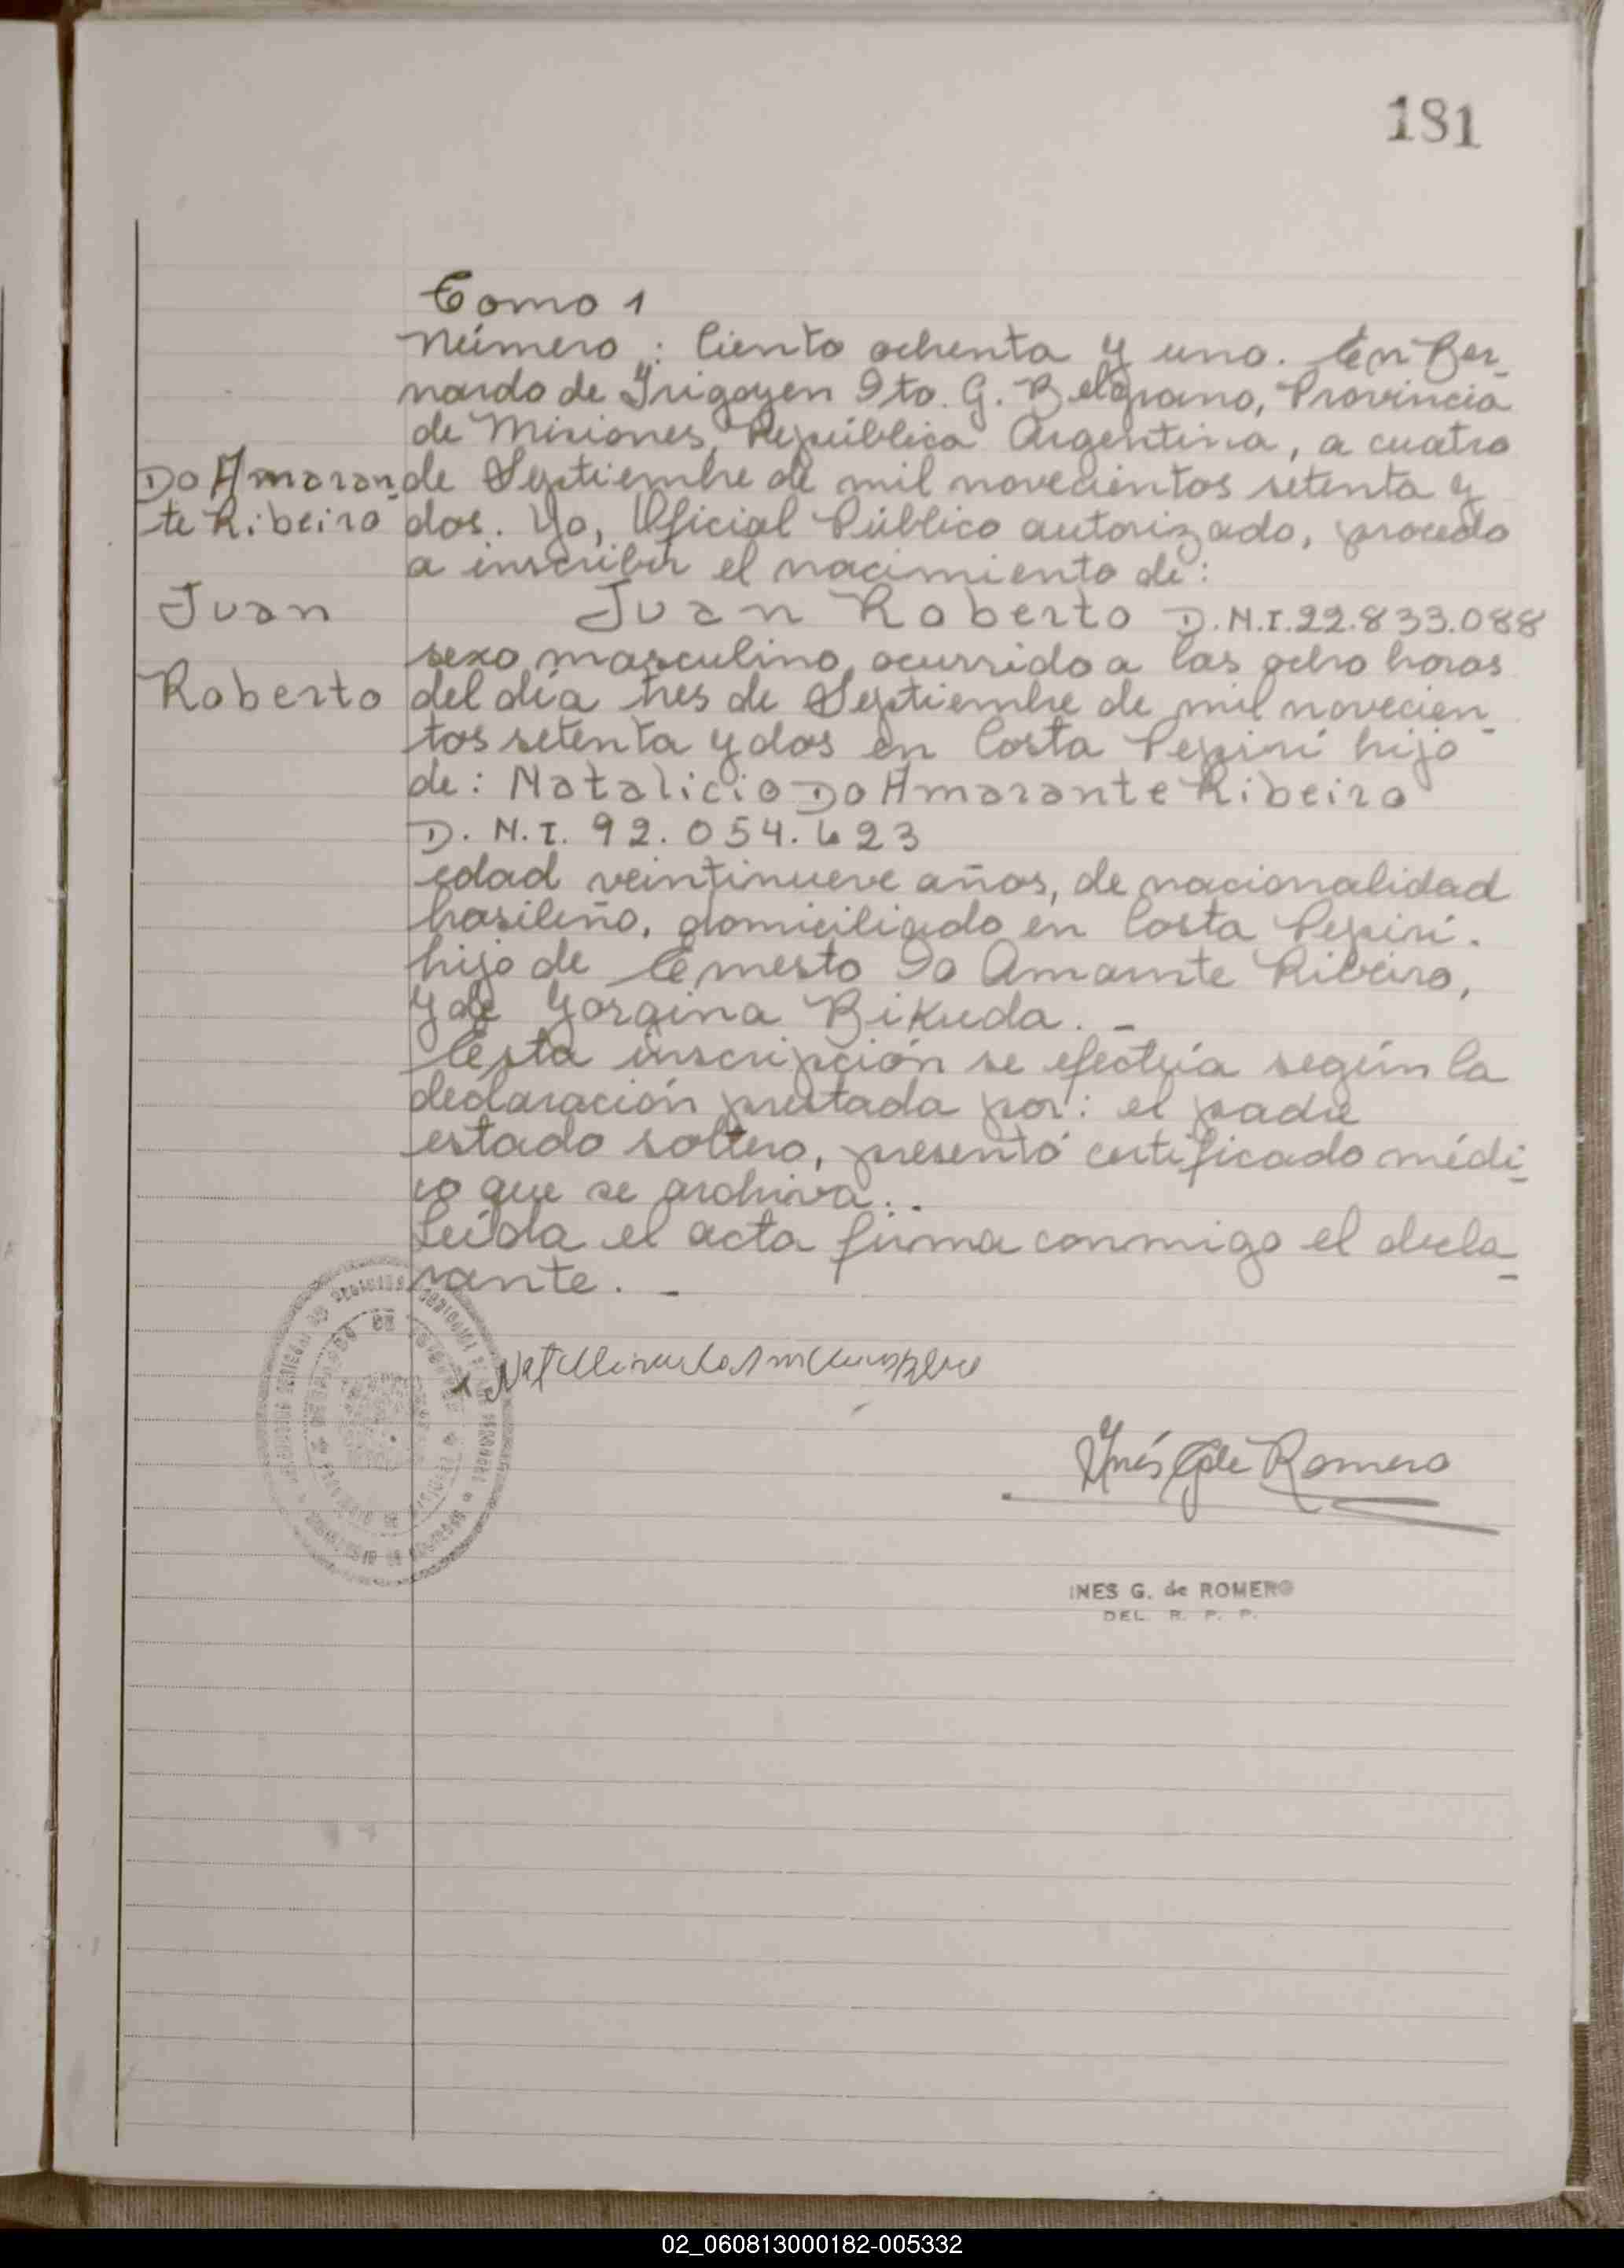 181
Tomo 1
Número : Ciento ochenta y uno. En Ber_
nardo de Yrigoyen Dto. G. Belgrano, Provincia
de Misiones, República Argentina, a cuatro
Do Amaran_
de Septiembre de mil novecientos setenta y
te Ribeiro
dos. Yo, Oficial Público autorizado, procedo
a inscribir el nacimiento de :
Juan
Juan Roberto D.N.I. 22.833.088
sexo masculino, ocurrido a las ocho horas
Roberto
del día tres de Septiembre de mil novecien_
tos setenta y dos en Costa Pepirí hijo
de : Natalicio Do Amarante Ribeiro
D. N. I. 92. 054. 623
edad veintinueve años, de nacionalidad
brasileño, domiciliado en Costa Pepirí.
hijo de Ernesto Do Amarnte Ribeiro,
y de Yorgina Bikuda. _
Esta inscripción se efectúa según la
declaración prestada por : el padre
estado soltero, presentó certificado médi_
co que se archiva..
Leída el acta firma conmigo el decla_
rante. _
Inés G de Romero
INES G. de ROMERO
DEL. R. P. P.
02_060813000182-005332